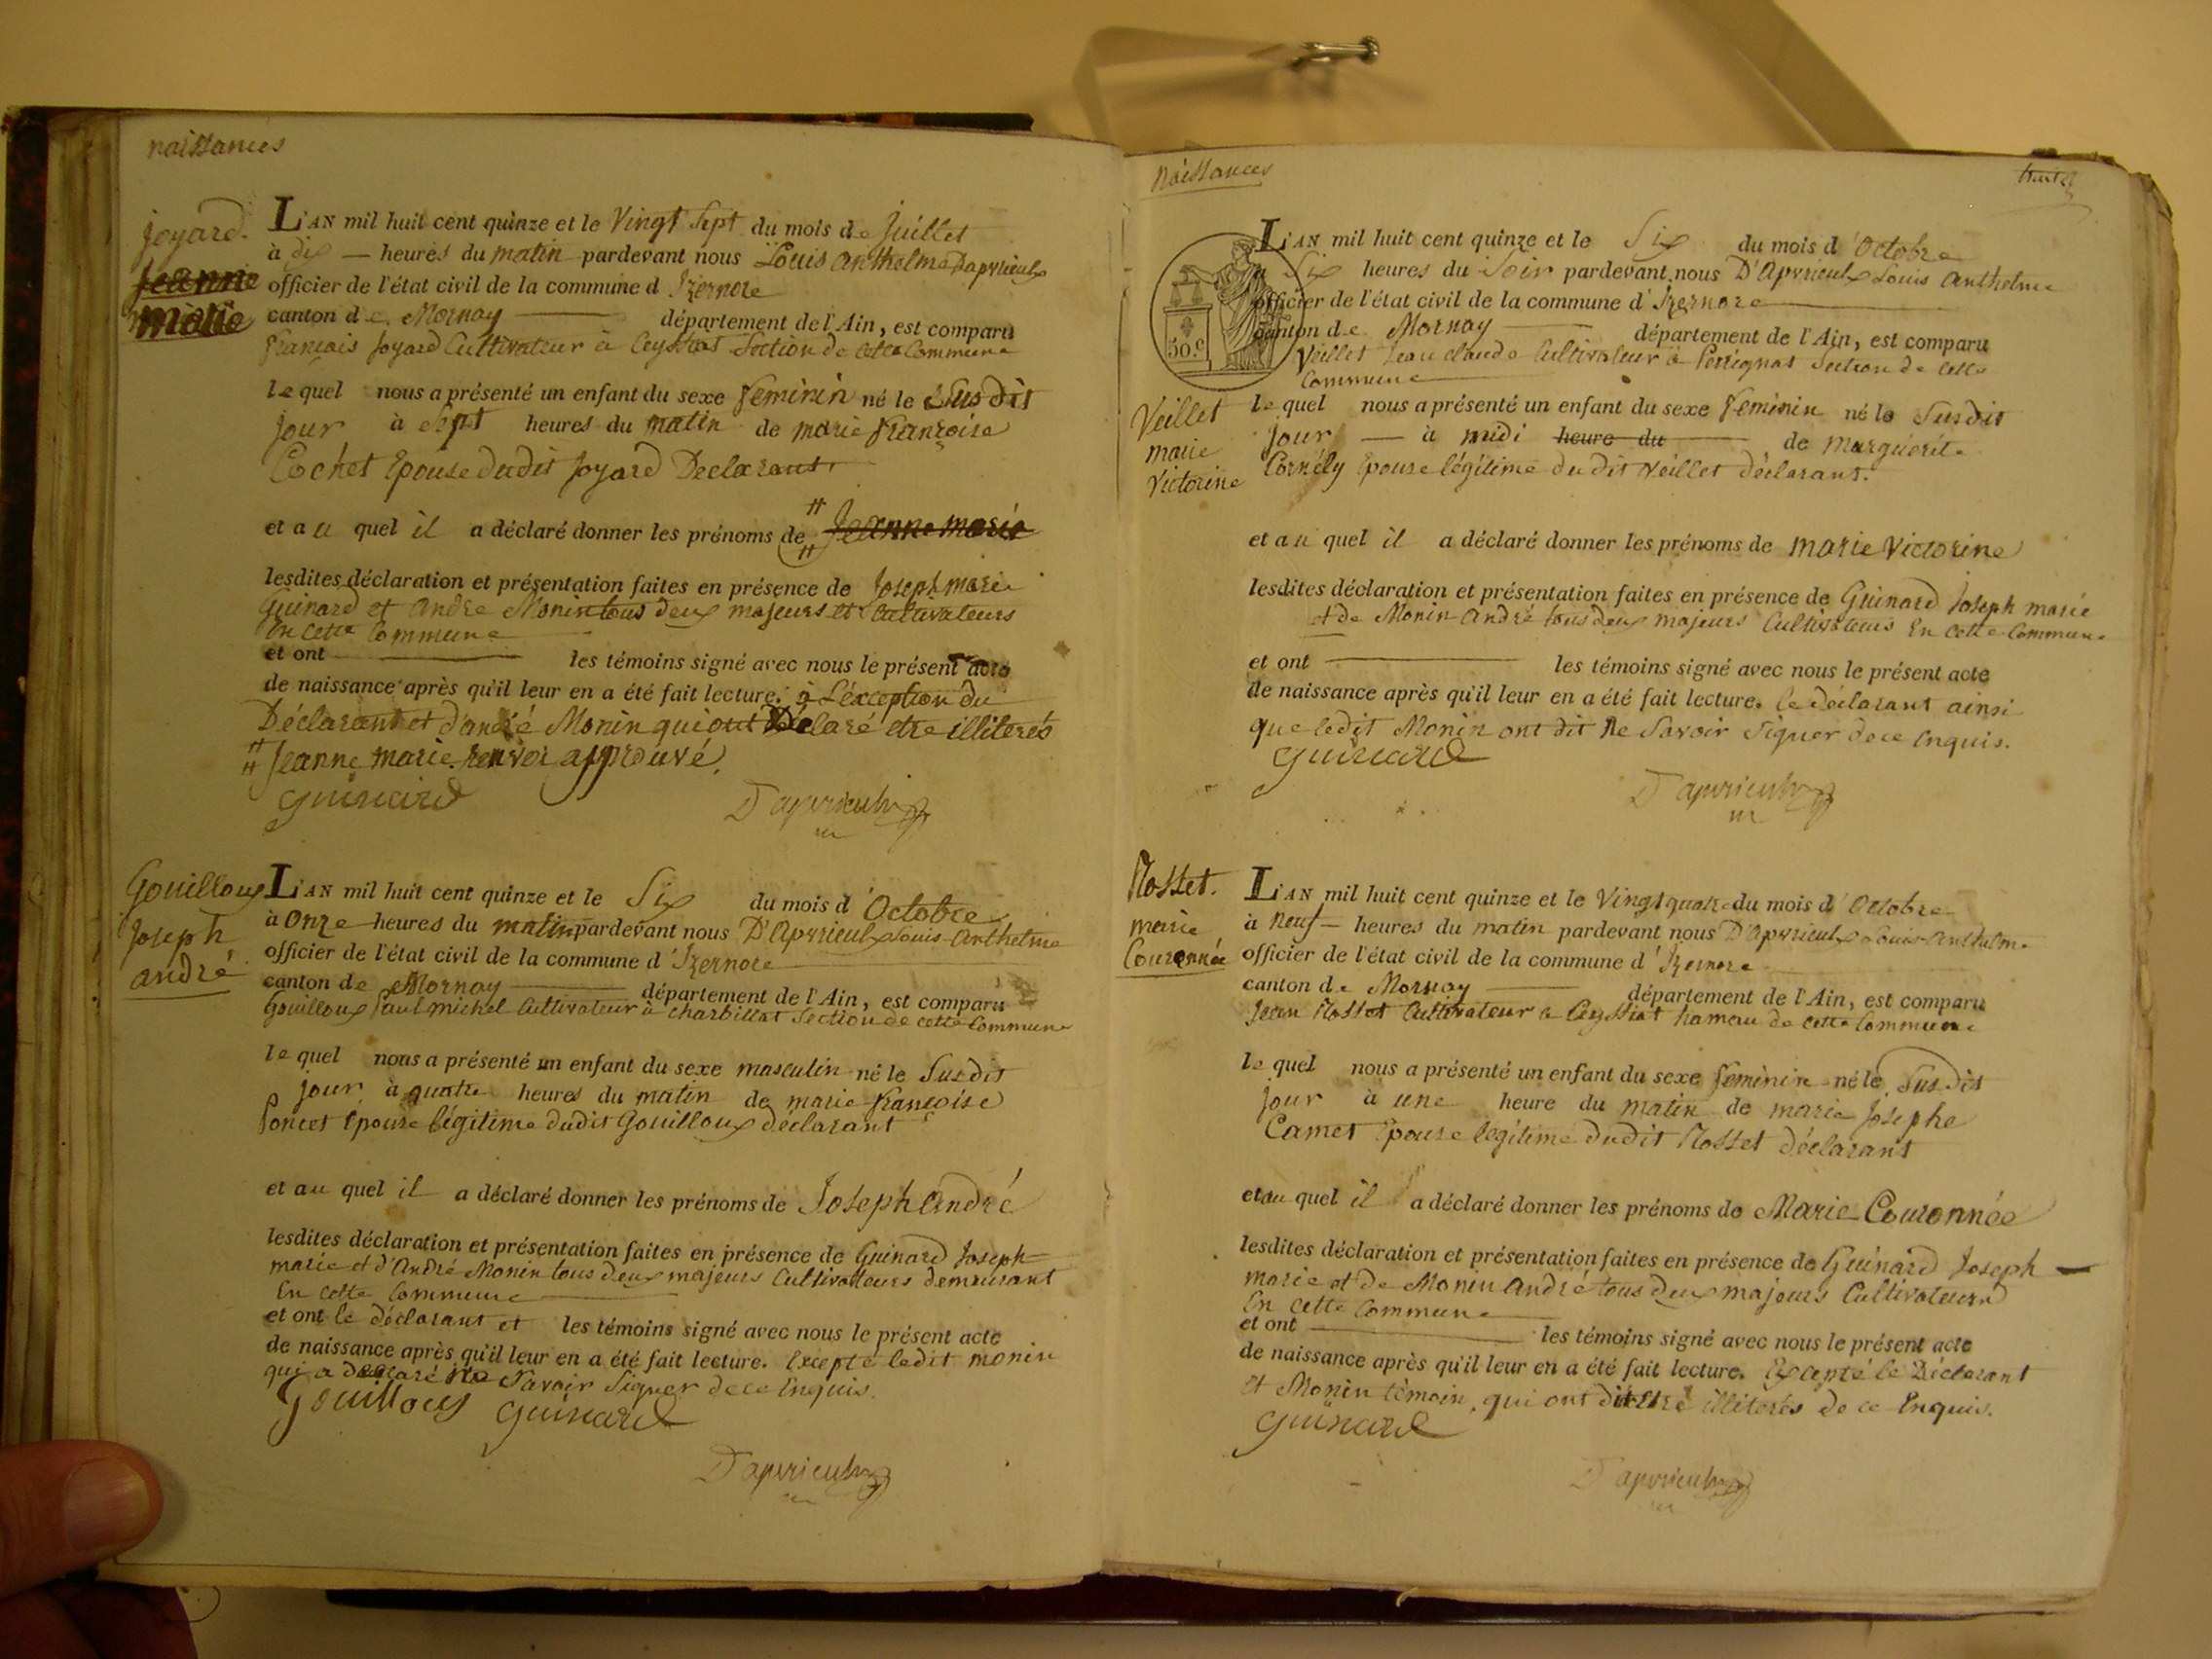 naissances
joyard.
Jeanne
marie
L'AN mil huit cent quinze et le Vingt Sept du mois de Juillet
à dix — heures du matin pardevant nous Louis Anthelme Dapvrieulx
officier de l'état civil de la commune d Izernore
canton de Mornay département de l'Ain, est comparu
français joyard Cultivateur à Ceyssiat Section de cette Commune
le quel nous a présenté un enfant du sexe feminin né le Susdit
jour à Sept heures du matin de marie françoise
Cochet Epouse dudit joyard Declarant
et a u quel il a déclaré donner les prénoms de # Jeanne marie #
lesdites déclaration et présentation faites en présence de Joseph marie
Guinard et andre Monin tous deux majeurs et Cultivateurs
En cette Commune
et ont les témoins signé avec nous le présent acte
de naissance après qu'il leur en a été fait lecture. à L'éxception du
Déclarant et d'andré Monin qui ont Déclaré etre illiterés
# Jeanne marie renvoi approuvé.
#
Guinard
Dapvrieulx
Gouilloux
Joseph
andré
L'AN mil huit cent quinze et le Six du mois d'Octobre
à Onze heures du matin pardevant nous D'Apvrieulx Louis Anthelme
officier de l'état civil de la commune d'Izernore
canton de Mornay département de l'Ain, est comparu
Gouilloux Paul michel Cultivateur à charbillat Section de cette Commune
le quel nous a présenté un enfant du sexe masculin né le Susdit
jour à quatre heures du matin de marie françoise
Poncet Epouse légitime dudit Gouilloux déclarant
et au quel il a déclaré donner les prénoms de Joseph André
lesdites déclaration et présentation faites en présence de Guinard Joseph
marie et d'André Monin tous deux majeurs Cultivateurs demeurant
En cette Commune
et ont le déclarant et les témoins signé avec nous le présent acte
de naissance après qu'il leur en a été fait lecture. Excepté ledit monin
qui a déclaré ne Savoir Signer de ce Enquis.
Gouilloux Guinard
Dapvrieulx
Naissances
50.c
Veillet
marie
Victorine
L'AN mil huit cent quinze et le Six du mois d'Octobre
à Six heures du Soir pardevant nous D'Apvrieulx Louis Anthelme
officier de l'état civil de la commune d'Izernore
canton de Mornay département de l'Ain, est comparu
Veillet Jean claude Cultivateur à Perrignat Section de cette
Commune
le quel nous a présenté un enfant du sexe feminin né le Susdit
jour — à midi heure du de Marguerite
Cornély Epouse légitime du dit Veillet déclarant.
et a u quel il a déclaré donner les prénoms de marie Victorine
lesdites déclaration et présentation faites en présence de Guinard Joseph marie
et de Monin André tous deux majeurs Cultivateurs En cette Commune
et ont les témoins signé avec nous le présent acte
de naissance après qu'il leur en a été fait lecture. le déclarant ainsi
que ledit Monin ont dit Ne Savoir Signer de ce Enquis.
Guinard
Dapvrieulx
Mosset.
marie
Couronnée
L'AN mil huit cent quinze et le Vingt quatre du mois d'Octobre
à Neuf — heures du matin pardevant nous D'Apvrieulx Louis Anthelme
officier de l'état civil de la commune d'Izernore
canton de Mornay département de l'Ain, est comparu
Jean Mosset Cultivateur a Ceyssiat hameau de cette Commune
le quel nous a présenté un enfant du sexe feminin né le Susdit
jour à une heure du matin de marie Josephe
Camet Epouse legitime dudit Mosset déclarant
et au quel il a déclaré donner les prénoms de Marie Couronnée
lesdites déclaration et présentation faites en présence de Guinard Joseph
marie et de Monin André tous deux majeurs Cultivateurs
En cette Commune
et ont les témoins signé avec nous le présent acte
de naissance après qu'il leur en a été fait lecture. Excepté le Déclarant
et Monin témoin, qui ont dit Etre illiterés de ce Enquis.
Guinard
Dapvrieulx